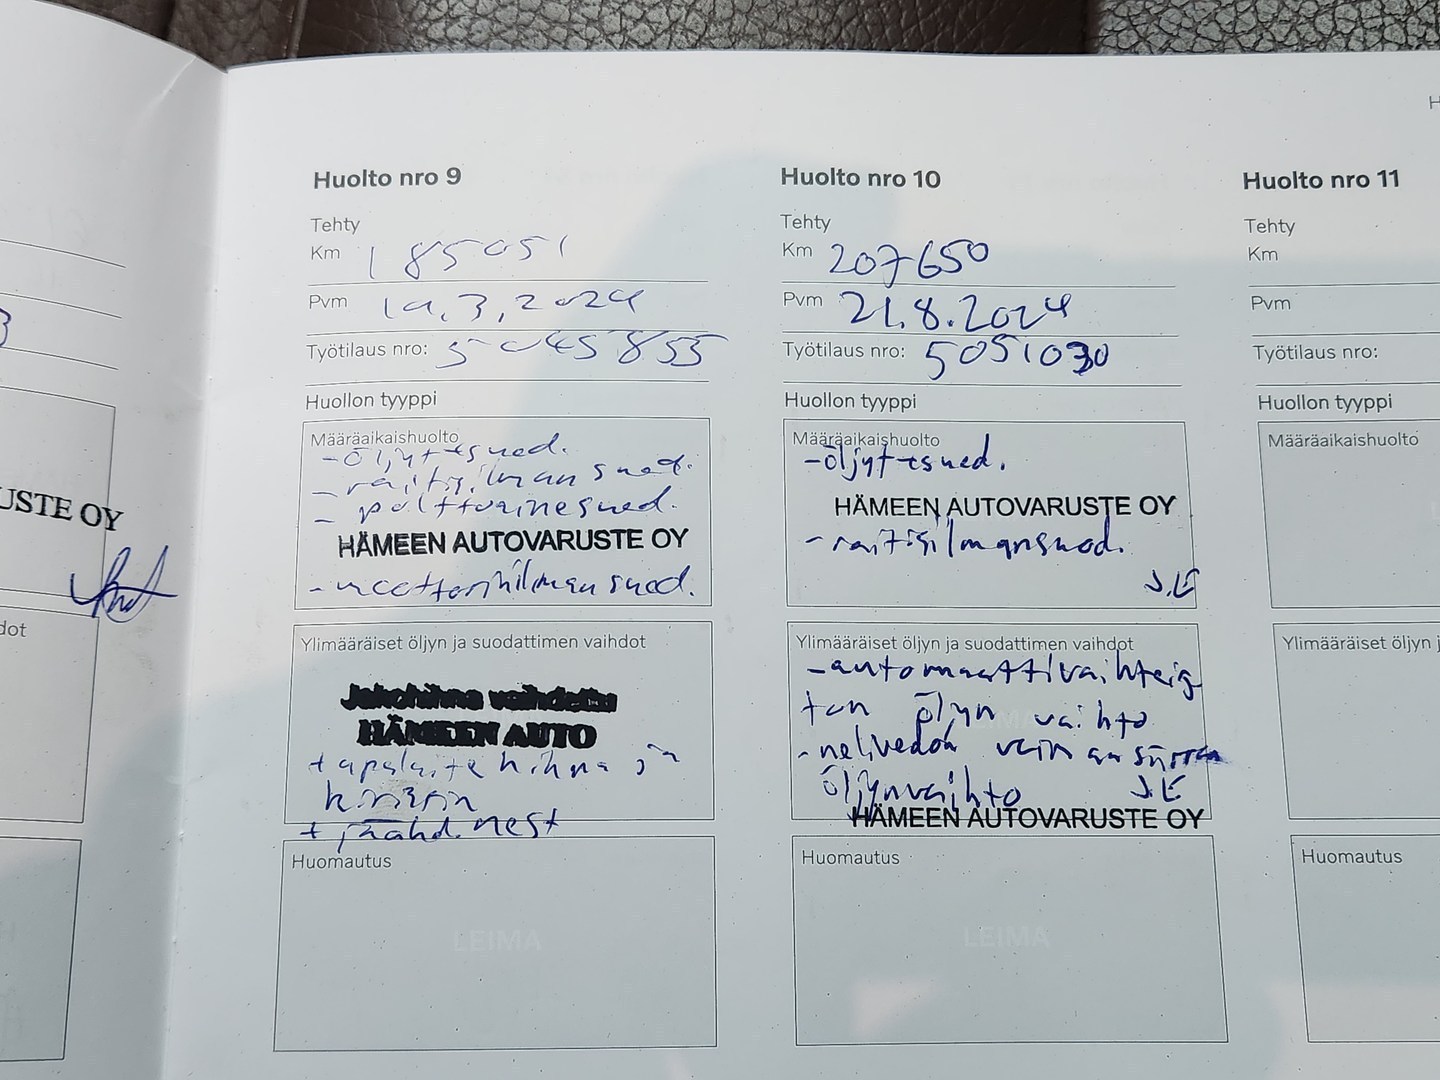 USTE OY
dot
Huolto nro 9
Tehty
Km 185051
Pvm 19.3.2024
Työtilaus nro: 5045855
Huollon tyyppi
Määräaikaishuolto
-öljyt+sued.
-raitisilman suod.
- polttoainesuod.
HÄMEEN AUTOVARUSTE OY
-moottorinilman suod.
Ylimääräiset öljyn ja suodattimen vaihdot
Jakohihna vaihdettu
HÄMEEN AUTO
+apulaitehihna ja
kiristin
+jäähd.nest
Huomautus
LEIMA
Huolto nro 10
Tehty
Km 207650
Pvm 21.8.2024
Työtilaus nro: 5051030
Huollon tyyppi
Määräaikaishuolto
-öljyt+sued.
HÄMEEN AUTOVARUSTE OY
-raitisilmansuod.
J.E
Ylimääräiset öljyn ja suodattimen vaihdot
-automaattivaihteis
ton öljyn vaihto
-nelivedon
öljynvaihto J.E
HÄMEEN AUTOVARUSTE OY
Huomautus
LEIMA
Huolto nro 11
Tehty
Km
Pvm
Työtilaus nro:
Huollon tyyppi
Määräaikaishuolto
Ylimääräiset öljyn j
Huomautus